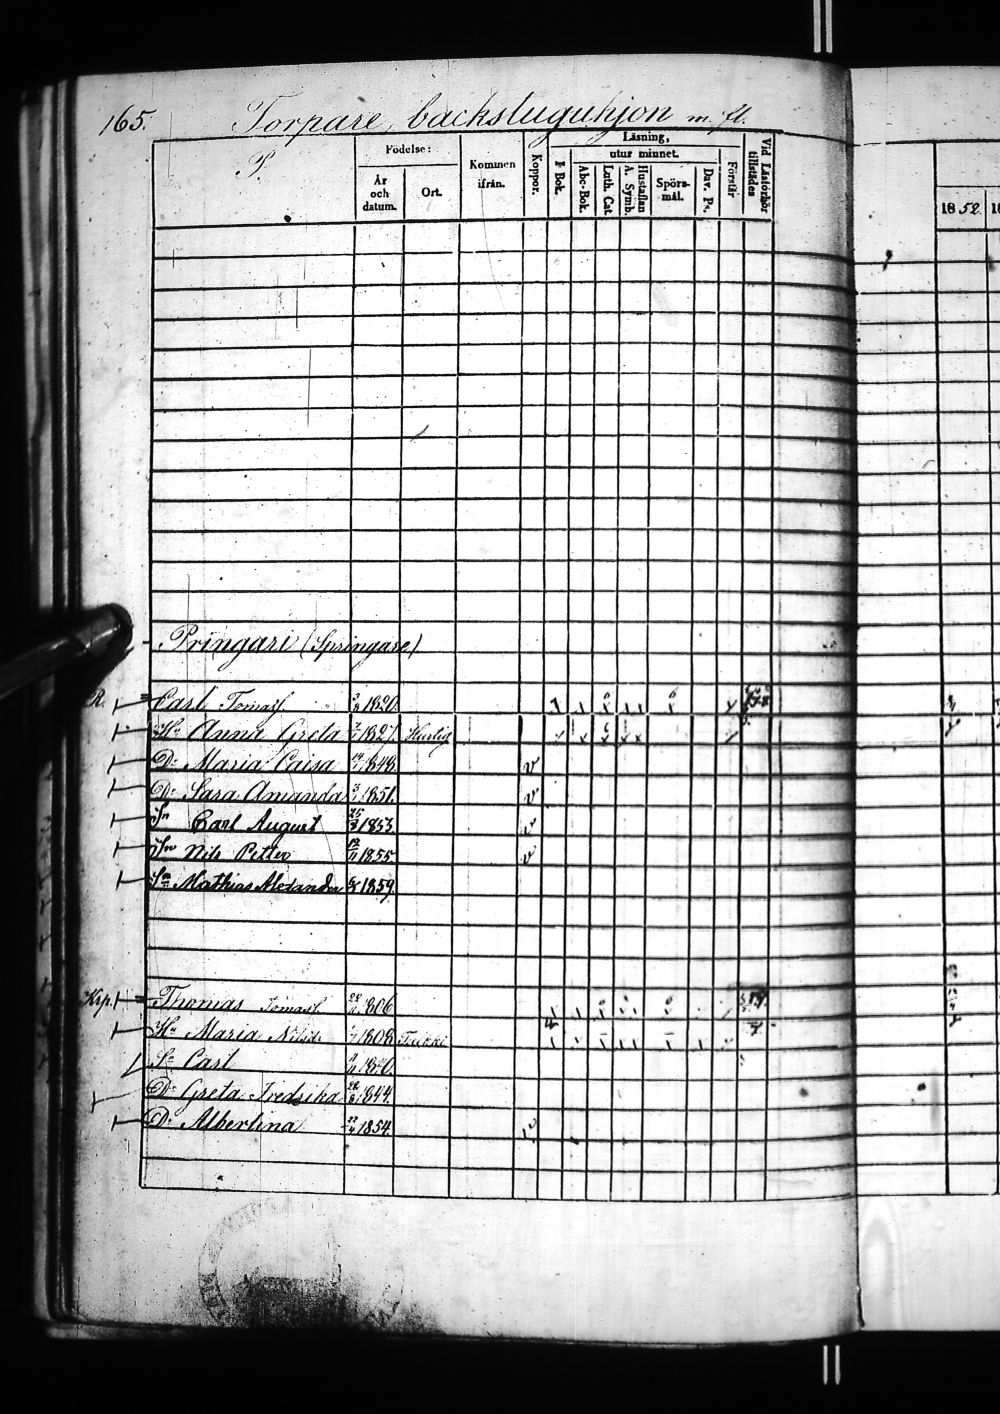 165. Torpare, backstuguhjon m. fl.
P
Födelse:
År och datum.
Ort.
Kommen ifrån.
Koppor.
Läsning,
I Bok.
utur minnet.
Abc-Bok.
Luth. Cat.
Hustaflan A. Symb.
Spörs-mål.
Dav. Ps.
Förstår
Vid Läsförhör tillstädes
1852.
Pringari (Springare)
R. Carl Tomasf 1820.
Hu Anna Greta 1827. Hurlig
Dr Maria Caisa 1848.
Dr Sara Amanda 1851.
Sn Carl August 25/8 1853
Sn Nils Petter 12/11 1855
Sn Mathias Alexander 1859.
Krp. Thomas Tomasf 1806
Hu Maria Nilsd. 1808
Sn Carl
Dr Greta Fredrika 1844.
Dr Albertina 1854.